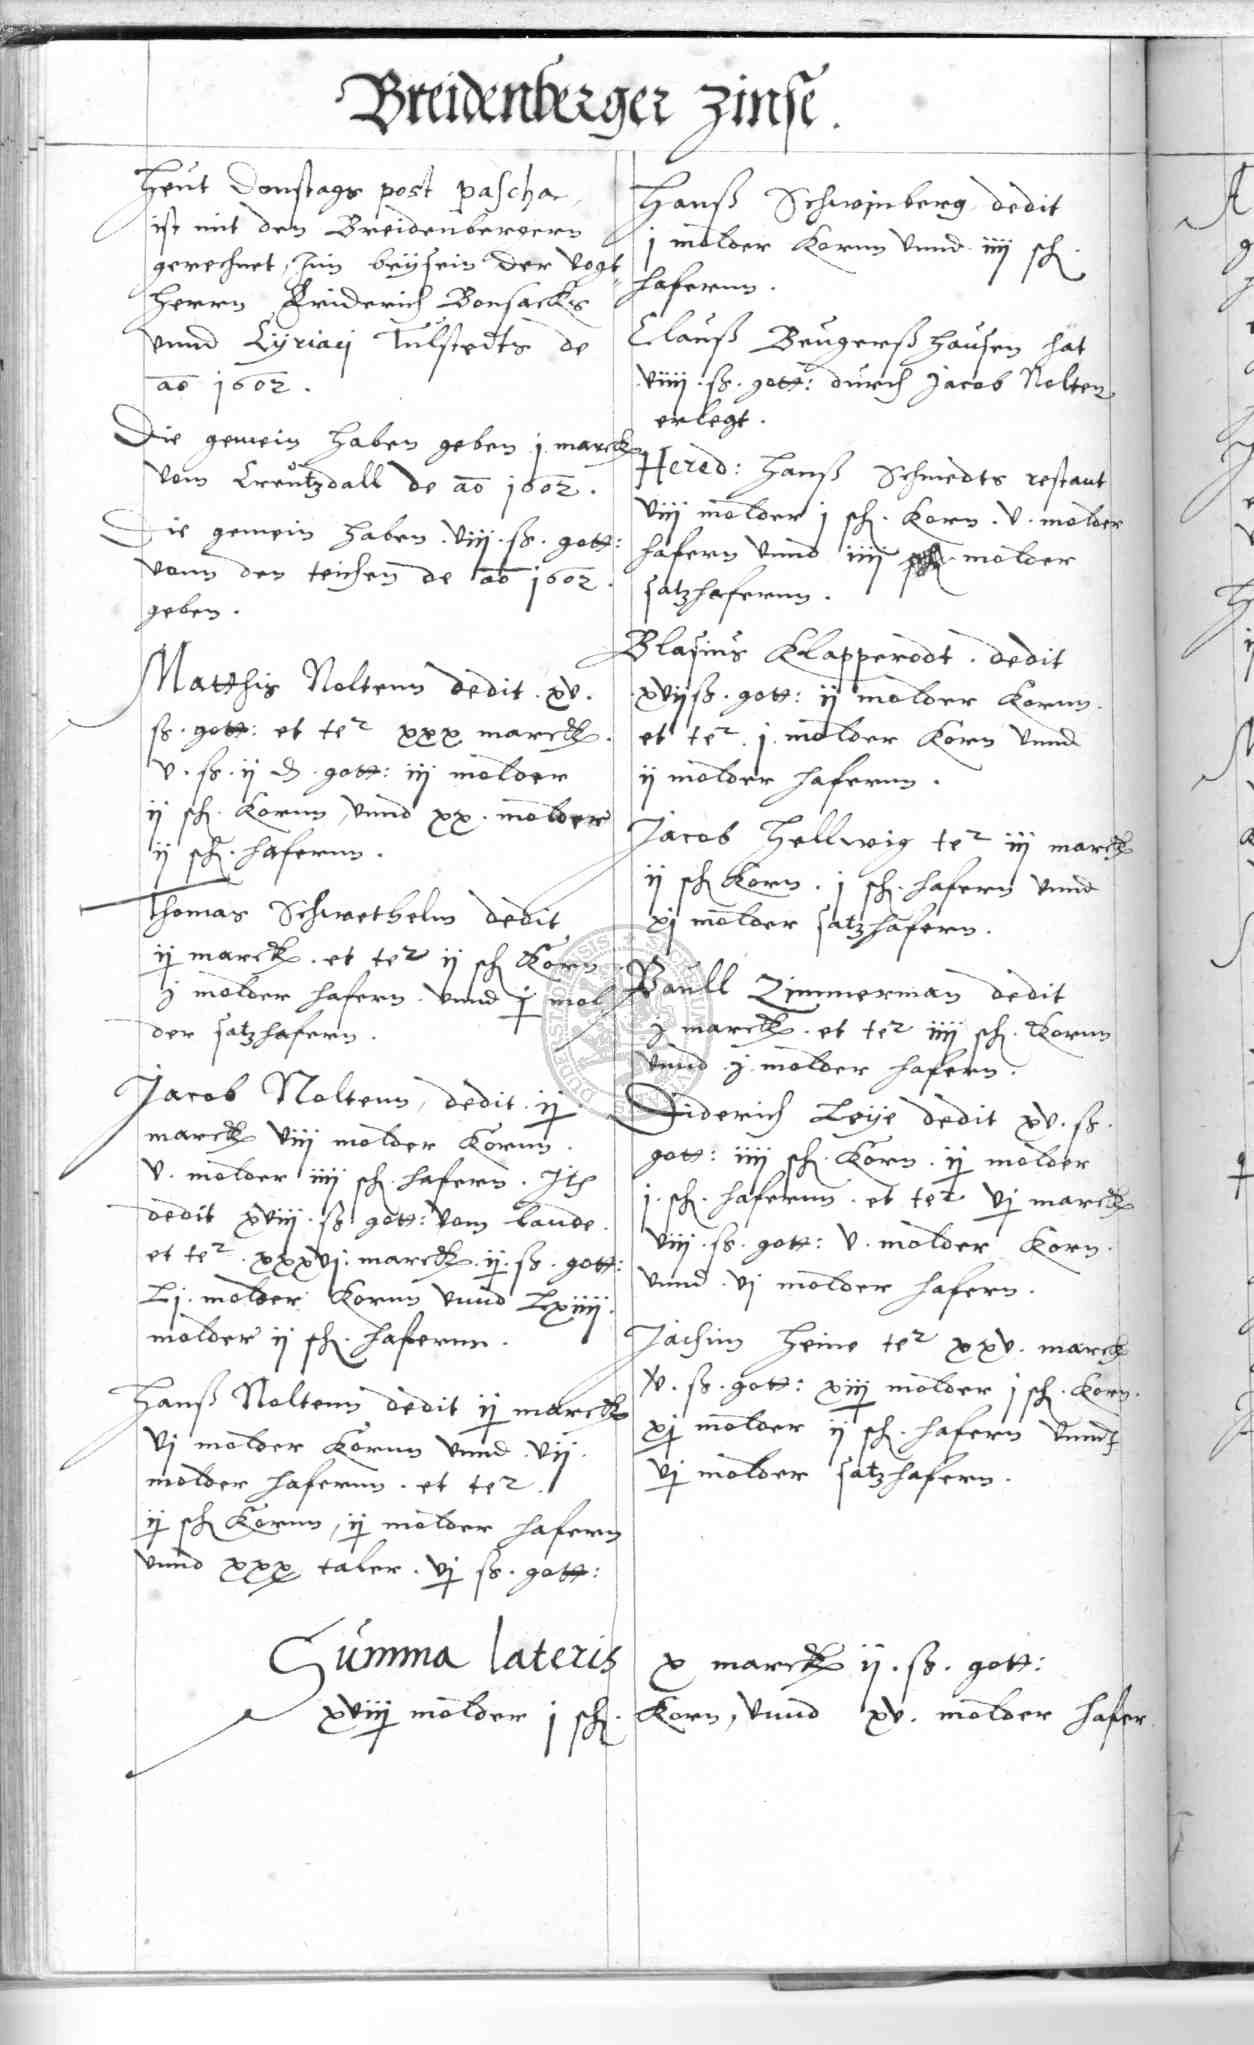 Breidenberger Zinse.
Heut Donstags post pascha
ist mit den Breidenbergern
gerechnet, Inn beysein der Vogt
herrn Friderich Bonsacks
vnnd Cyriaci Tülstedts de
ao 1602.
Die gemein haben geben j marck
vom Creutzdall de ao 1602.
Die gemein haben . viij . ß . gott:
vonn den teichen de ao 1602.
geben.
Matthis Noltenn dedit . xv.
ß . gott: et ter xxx marck.
v . ß . ij ₰ . gott: iij molder
ij sch. Kornn, vnnd xx. molder
ij sch. hafernn.
Thomas Schwethelm dedit
ij marck . et ter ij sch Korn
j molder hafern . vnnd j mol
der satzhafern.
Jacob Noltenn, dedit . ij
marck viij molder Kornn.
v . molder iiij sch. hafern . Ite
dedit xviij . ß gott: vom lande.
et ter . xxxvj . marck . ij . ß . gott:
Lj . molder Kornn vnnd Lxiiij.
molder ij sch. hafernn.
Hanß Noltenn dedit ij marck
vj molder Kornn vnnd . vij.
molder hafernn . et ter.
ij sch Kornn, ij molder hafern
vnnd xxx taler . vj ß . gott:
Hanß Schwinberg dedit
j molder Kornn vnnd iiij sch.
hafernn.
Clauß Beugerßhausen hat
viiij . ß . gott: durch Jacob Nolten
erlegt.
Hered: Hanß Schmedts restant
viij molder j sch. Korn . v . molder
hafern vnnd iiij molder
satzhafernn.
Blasius Klapperodt . dedit
xvij ß . gott: ij molder Kornn.
et ter . j . molder Korn vnnd
ij molder hafernn.
Jacob Hellwig ter iij marck
ij sch Korn . j sch. hafern vnnd
xj molder satzhafern.
Paull Zimmerman dedit
j marck . et ter iiij sch. Kornn
vnnd . j . molder hafern.
Diderich Leye dedit xv . ß.
gott: iiij sch. Korn . ij molder
j . sch. hafernn . et ter vj marck
viij . ß . gott: v . molder Korn.
vnnd . vj molder hafern.
Jachim Heine ter xxv . marck
v . ß . gott: xiij molder j sch. Korn.
xj molder ij sch. hafern vnndt
vj molder satzhafern.
Summa lateris x marck ij . ß . gott:
xviij molder j sch. Korn, vnnd xv . molder hafer